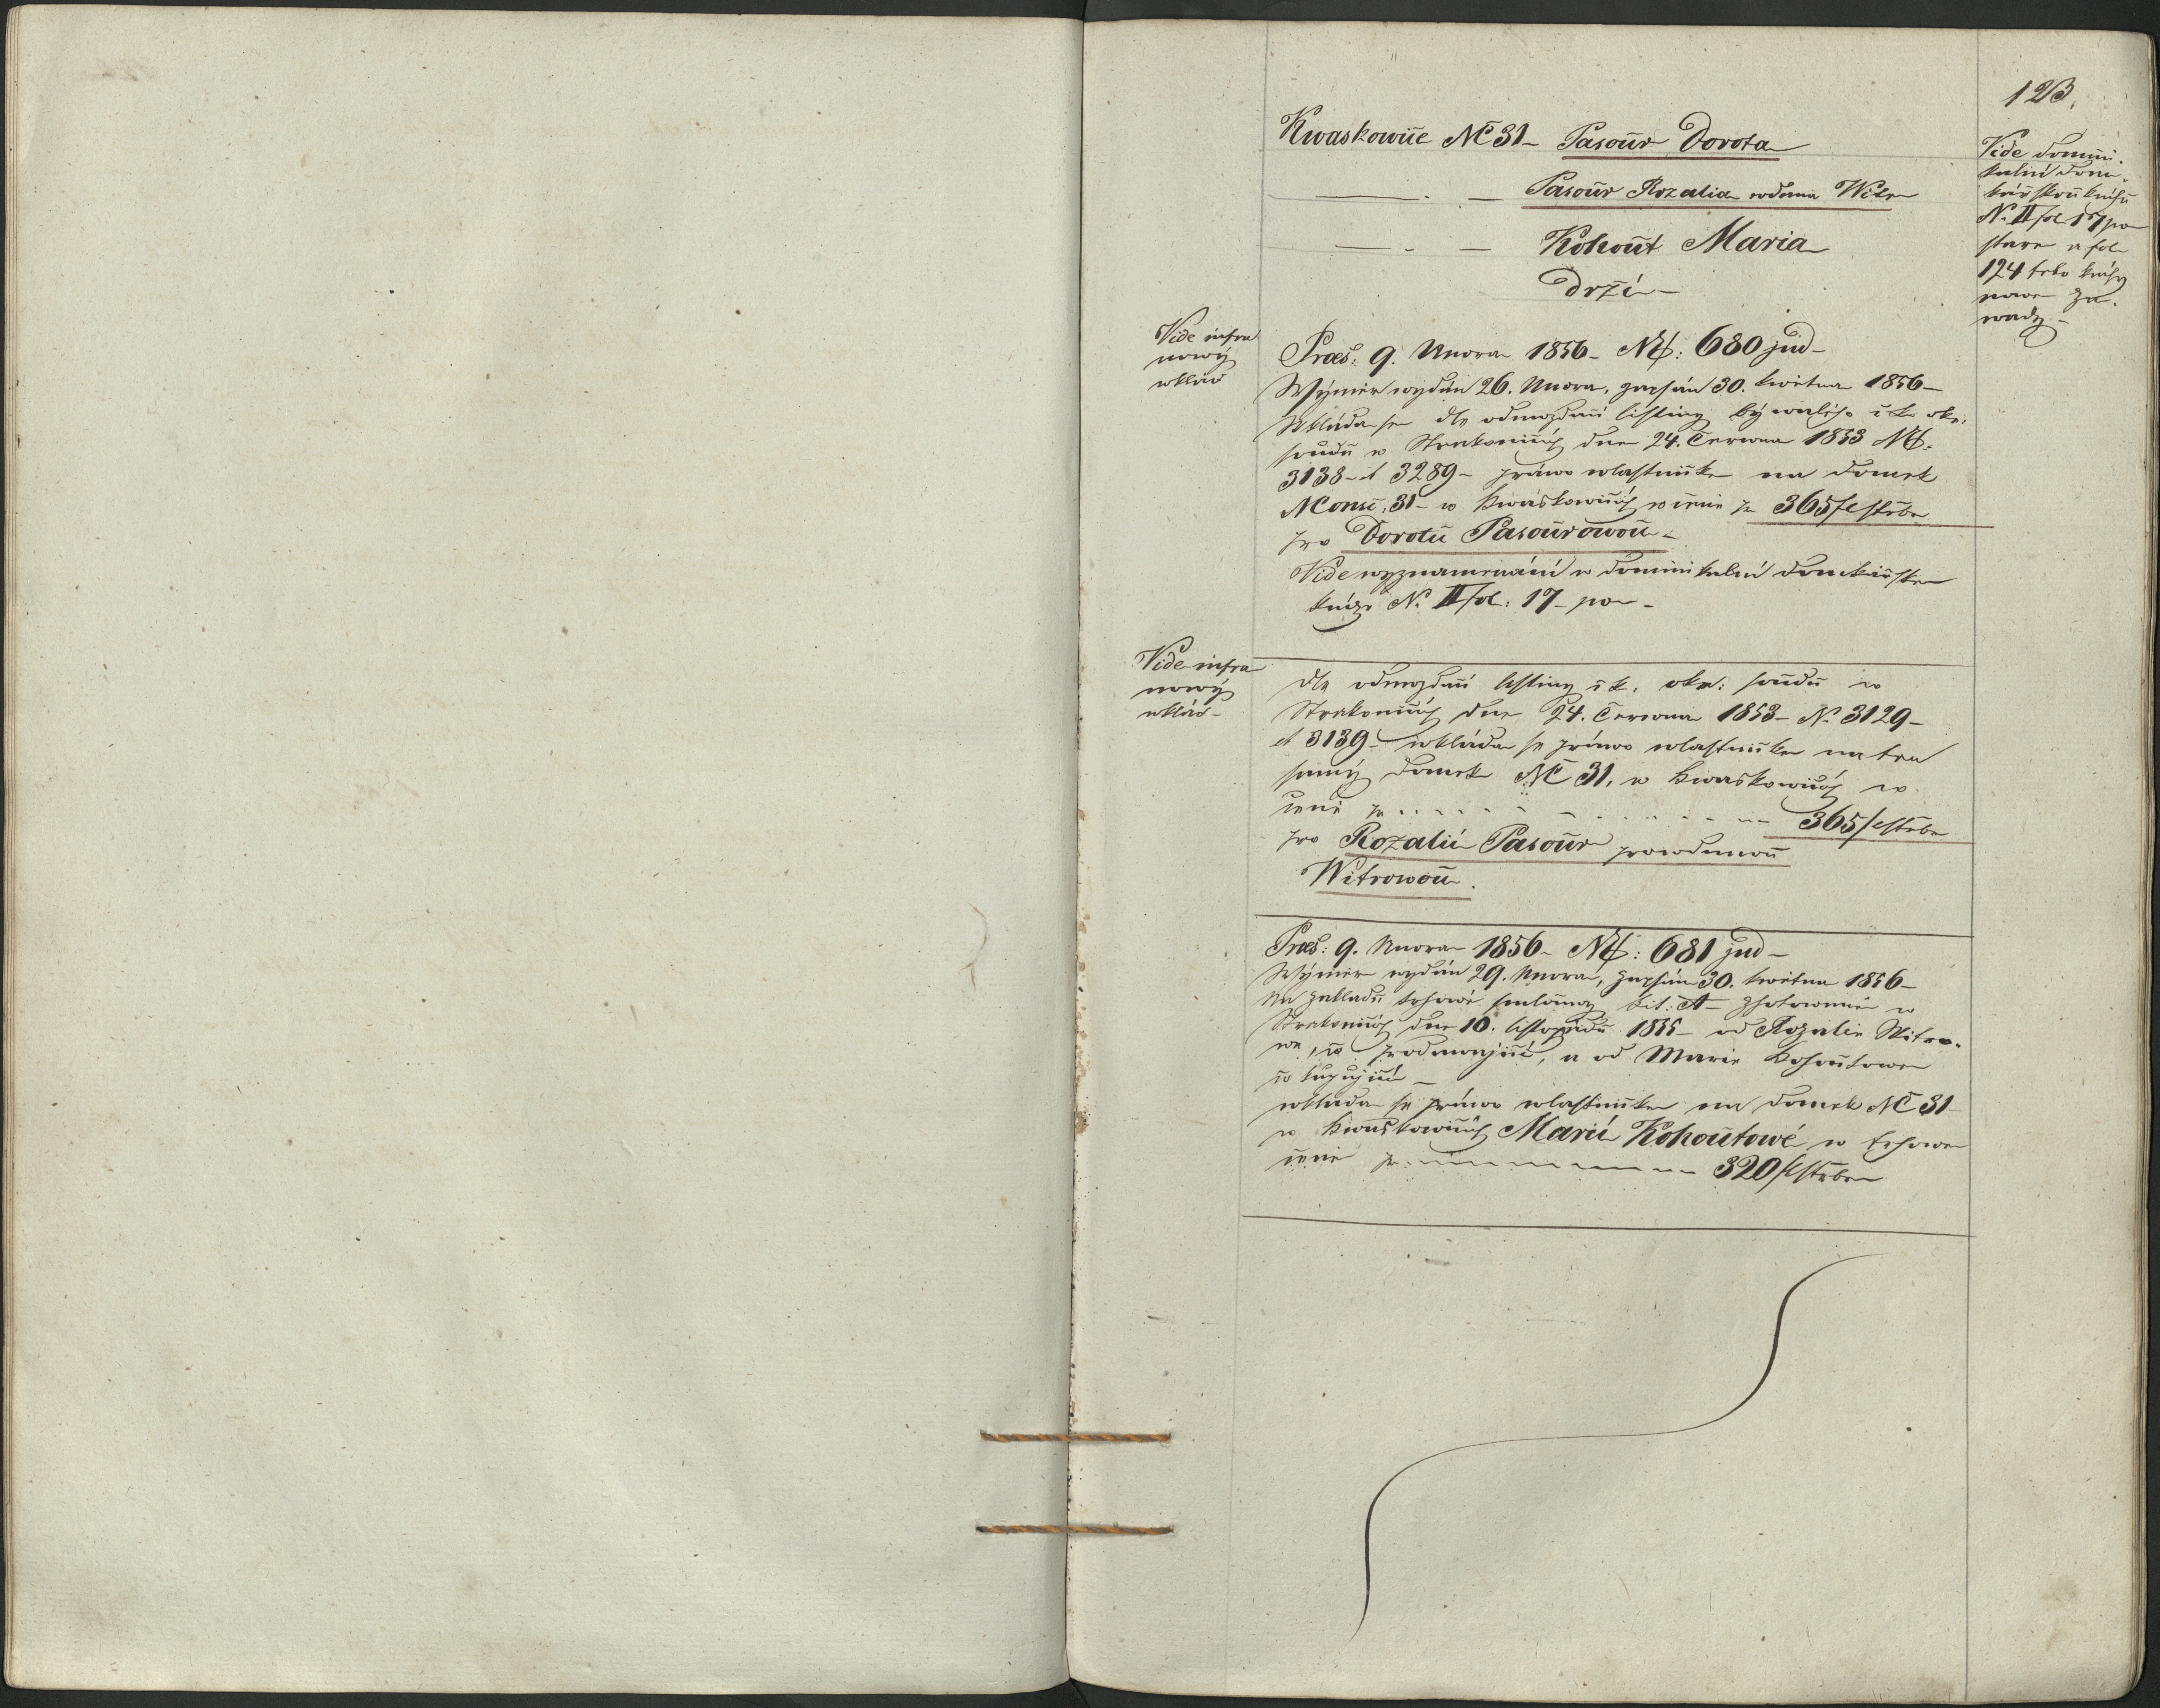 123.
Kwaskowic NC 31 – Pasour Dorota
– . – Pasour Rozalia wdana Witr
– . – Kohout Maria
Drží –
Vide domini-
kalní dom-
kářskou knihu
N. II fol 17 po
stara a fol
124 této knihy
nowe za-
wady –
Vide infra
nowý
wklad
Praes: 9. Unora 1856 – N E: 680 jud –
Wýměr wydán 26. Unora, zapsán 30. kwětna 1856 –
Wkláda se dle odewzdací listiny býwalého c. k. okr.
soudu w Strakonicích dne 24. Června 1853 N E.
3138 – et 3289 – práwo wlastnické na domek
N Consc. 31 – w Kwaskowicích w ceně za 365 f stříbra
pro Dorotu Pasourowou –
Vide wyznamenání w dominikalní domkářské
knize N. II fol: 17 – po –
Vide infra
nowý
wklad –
dle odewzdací listiny c. k. okr: soudu w
Strakonicích dne 24. Června 1853 – N. 3129 –
et 3139 – wkláda se práwo wlastnické na ten
samý domek NC 31, w Kwaskowicích w
ceně za – – – 365 f stříbra
pro Rozalii Pasour prowdanou
Witrowou.
Praes: 9. Unora 1856 – N E: 681 jud –
Wýměr wydán 29. Unora, zapsán 30. kwětna 1856 –
Na zakladě trhowé smlouwy Lit: A – zhotowené w
Strakonicích dne 10. listopadu 1855 – od Rozalie Witro-
we, co prodawající, a od Marie Kohoutowe
co kupující –
wkláda se práwo wlastnické na domek NC 31
w Kwaskowicích Marii Kohoutowé w trhowe
ceně za – – – 320 f stříbra